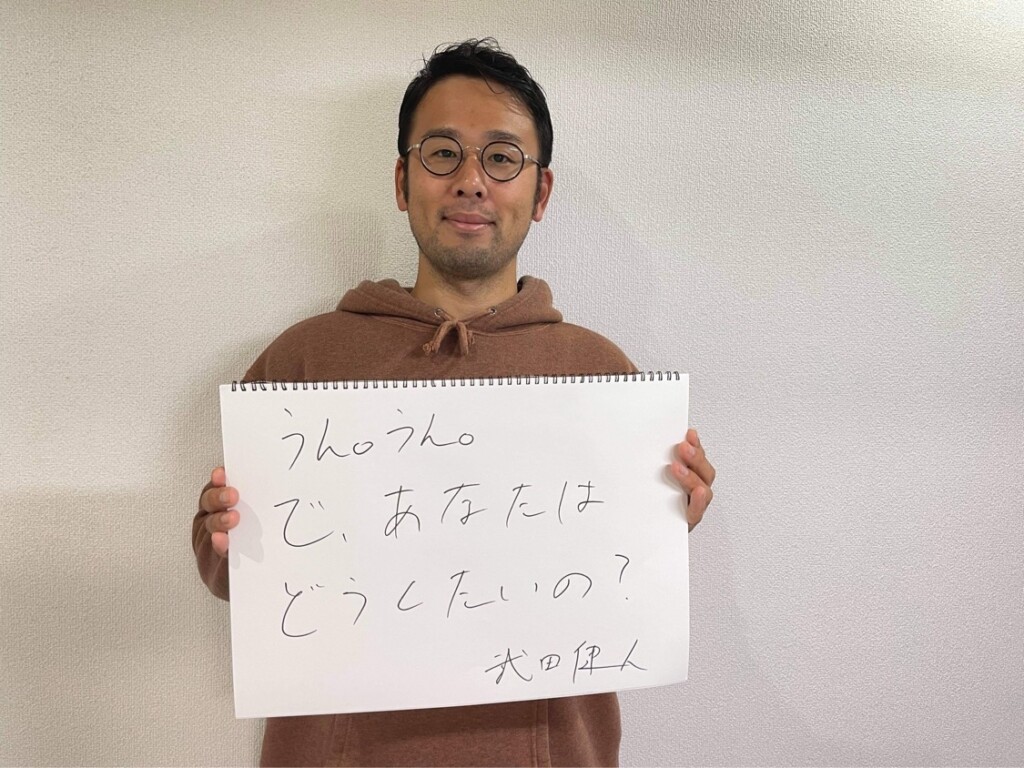 うん。うん。
で、あなたは
どうしたいの?
武田健人